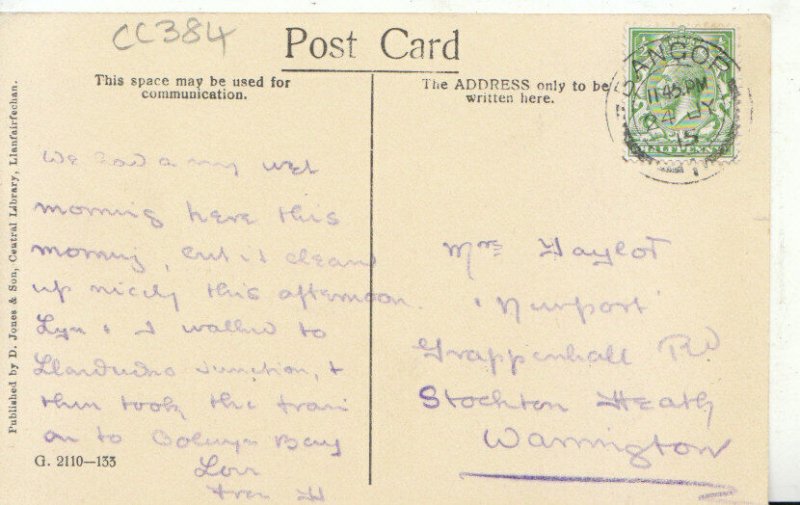 CC384
Post Card
This space may be used for
communication.
The ADDRESS only to be
written here.
BANGOR
11.45 PM
24 JY
15
HALFPENNY
Published by D. Jones & Son, Central Library, Llanfairfechan.
We had a very wet
morning here this
morning, but it cleared
up nicely this afternoon.
Lyn & I walked to
Llandudno Junction, &
then took the train
on to Colwyn Bay
Love
from H
Mrs Taylor
'Newport'
Grappenhall Rd
Stockton Heath
Warrington
G. 2110—133